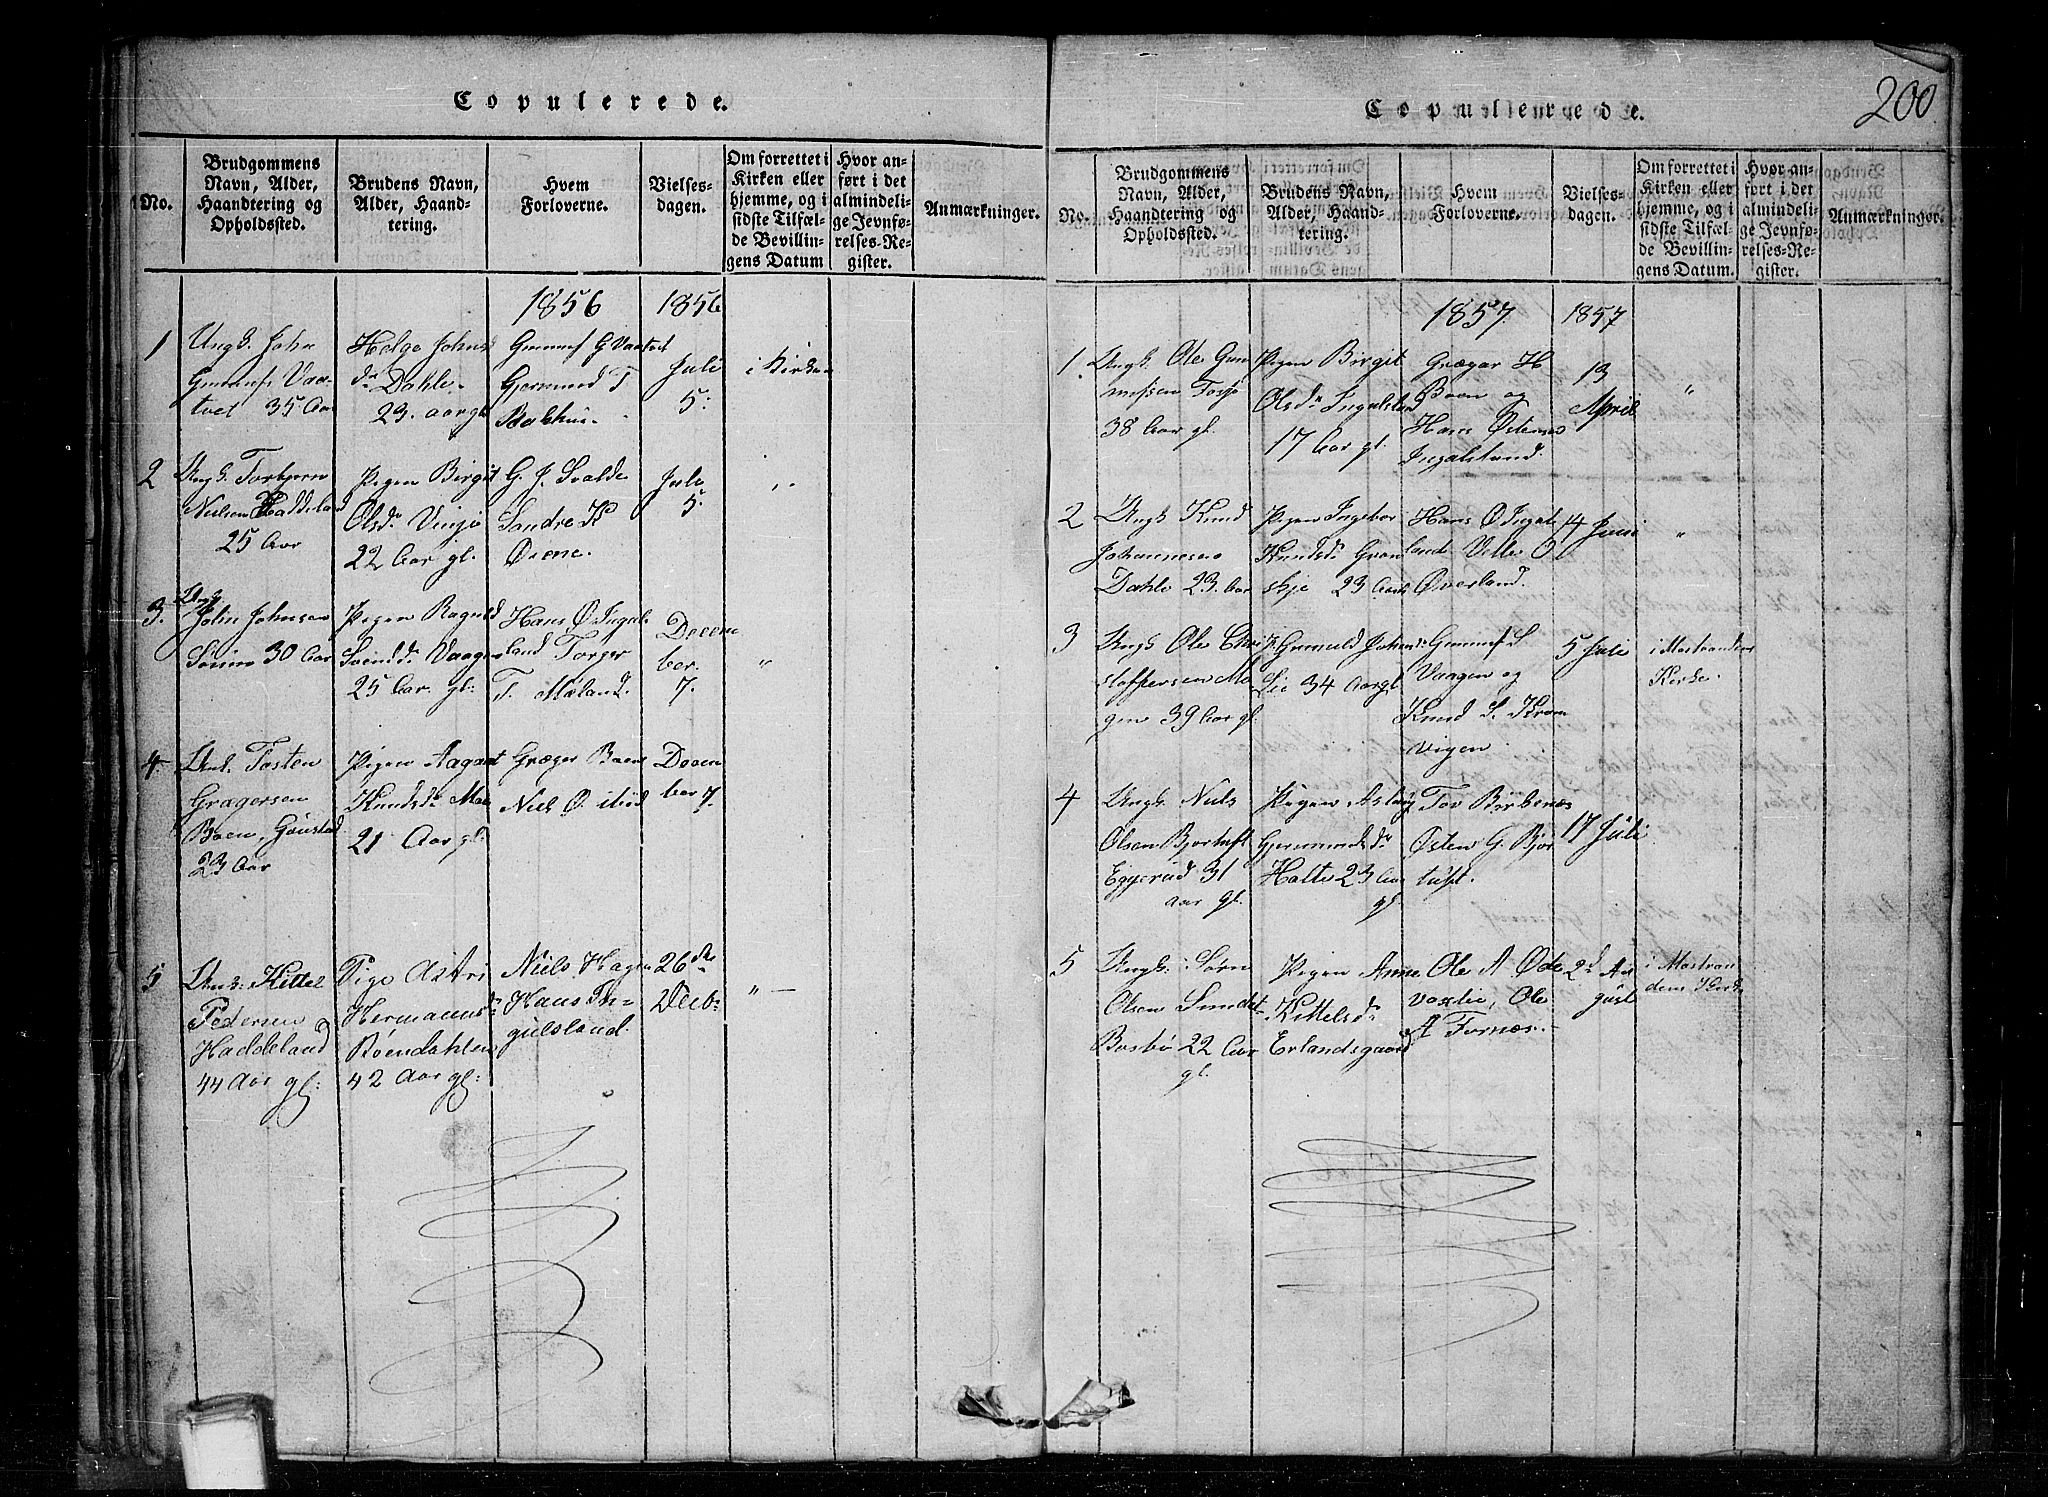 Copulerede.
No.
Brudgommens
Navn, Alder,
Haandtering og
Opholdssted.
Brudens Navn,
Alder, Haand-
tering.
Hvem
Forloverne.
Vielses-
dagen.
Om forrettet i
Kirken eller
hjemme, og i
sidste Tilfæl-
de Bevillin-
gens Datum
Hvor an-
ført i det
almindeli-
ge Jevnfø-
relses-Re-
gister.
Anmærkninger.
1856
1856
1
Ungk. John
Gunnufs Vaa-
tvet 35 Aar
Helge Johns
dr Dahle
23. aar gl
Gunnuf G Vaatvet
Gjermund T
Juli
5.
i Kirken
2
Ungk. Torbjørn
Nielsen Haddeland
25 Aar
Pigen Birgit
Olsdr Vinje
22 Aar gl.
G. J.
Sondre K
Juli
5.
"
3.
Ungk
John Johnsen
30 Aar
Pigen Ragnild
Svendsdr Vaagen
25 Aar gl:
Hans Ø Ingul
land Torger
T. Mæland.
Decem
ber.
7.
"
4
Unk. Tosten
Grægersen
Boen, Gøustad
23 Aar
Pigen Aagaat
Knudsdr Moe
21 Aar gl.
Græger Boen
Niels O. ibid
Decem
ber 7.
5
Unk: Kittel
Pedersen
Haddeland
44 Aar gl:
Pige Astri
Hermannsdr
Bøendahlen
42 Aar gl:
Niels Hagen
Hans In-
gulsland
26de
Decbr
" —
Copulerede.
200
No.
Brudgommens
Navn, Alder,
Haandtering og
Opholdssted.
Brudens Navn,
Alder, Haand-
tering.
Hvem
Forloverne.
Vielses-
dagen.
Om forrettet i
Kirken eller
hjemme, og i
sidste Tilfæl-
de Bevillin-
gens Datum.
Hvor an-
ført i det
almindeli-
ge Jevnfø-
relses-Re-
gister.
Anmærkninger.
1857.
1857
1.
Ungk Ole Gun
38 Aar gl.
Pigen Birgit
Olsdr Ingulsland
17 Aar gl.
Grægar H
Boen og
Hans Østenss
Ingulsland.
13
April
"
2
Ungk Knud
Johannesen
Dahle 23. Aar
Pigen Ingebor
Knudsdr Grøn
skje 23 Aar
Hans Ø Ingul
land Velle O
Øverland.
14 Juni
"
3
Ungk Ole Chri
stoffersen Mo
gen 39 Aar gl.
P. Gunuld Johansdr
Lie 34 Aar gl
Gunnuf S
Vaagen og
Knud S. Krom
vigen.
5 Juli
i Mostrandens
Kirke.
4
Ungk. Niels
Olsen Bjortuft
Eggerud 31
aar gl.
Pigen Aslaug
Gjermundsdr
Hatte 23 Aar
gl.
Tov Birkenæs
Østen G. Bjor
tuft.
17 Juli
5
Ungk. Sørn
Olsen Sundet
Busbø 22 Aar
gl.
Pigen Anne
Kittelsdr
Erlandsgaard
Ole A Øde
Ole
A Fornæs.
2d Au
gust
i Mostran
dens Kirke